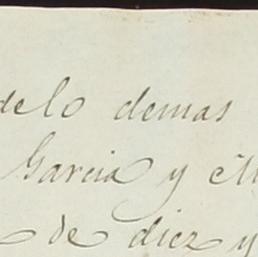 de lo demas
Garcia y
de diez y